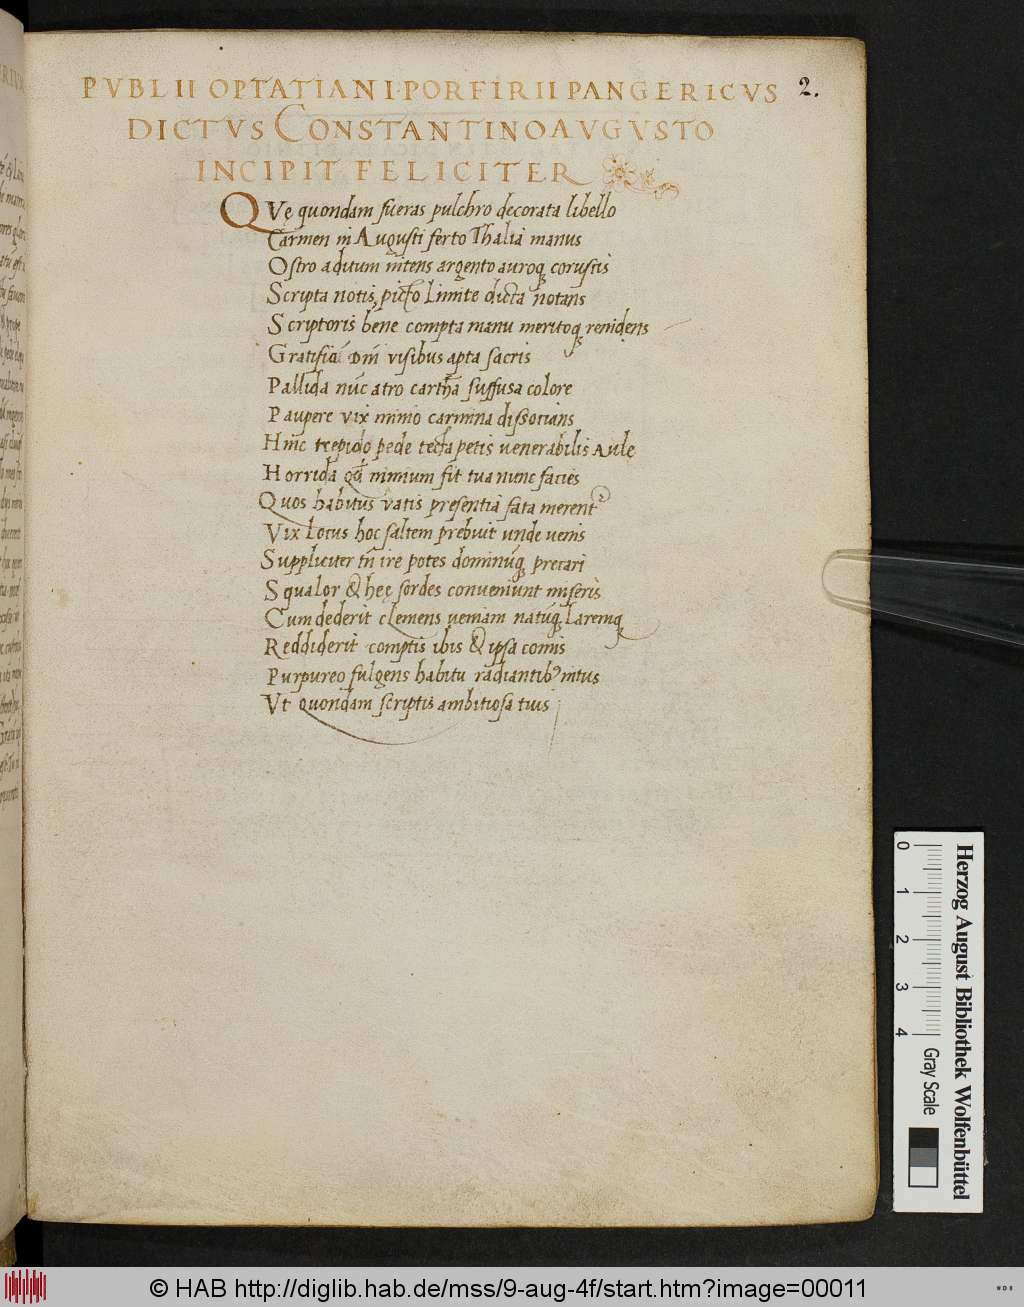 PVBLII OPTATIANI·PORFIRII PANGERICVS
2.
DICTVS CONSTANTINO AVGVSTO
INCIPIT FELICITER
QVe quondam fueras pulchro decorata libello
Carmen in Augusti ferto Thalia manus
Ostro aduum intens argento auroq coruscis
Scripta notis, picto limite dicta notans
Scriptoris bene compta manu meritoq renidens
Gratifica dñi visibus apta sacris
Pallida nūc atro cartha suffusa colore
Paupere vix minio carmina dissocians
Hinc trepido pede tecta petis uenerabilis Aulę
Horrida nimium fit tua nunc facies
Quos habitus vatis presentia fata merent
Vix locus hoc saltem prebuit unde uenis
Suppliciter tñ ire potes dominūq precari
Squalor & hęc sordes conueniunt miseris
Cum dederit clemens ueniam natūq Laremq
Reddiderit comptis ibis & ipsa comis
Purpureo fulgens habitu radiantibꝰ intus
Vt quondam scriptis ambitiosa tuis
0 1 2 3 4
Gray Scale
Herzog August Bibliothek Wolfenbüttel
© HAB http://diglib.hab.de/mss/9-aug-4f/start.htm?image=00011